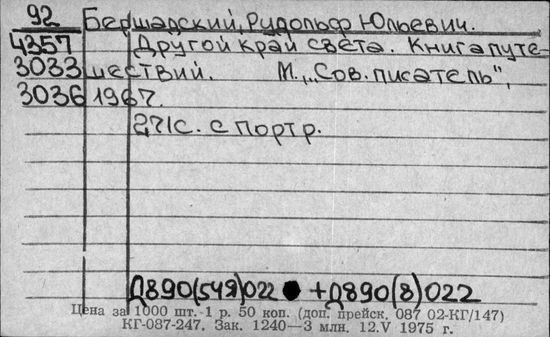 92 Бершадский, Рудольф Юльевич.
4357 Другой край света. Книга путе-
3033 шествий. М., „Сов. писатель",
3036 1967.
271с. с портр.
Д890(549)022 ● +Д890(8)022
Цена за 1000 шт. 1 р. 50 коп. (доп. прейск. 087 02-КГ/147)
КГ-087-247. Зак. 1240—3 млн. 12.V 1975 г.